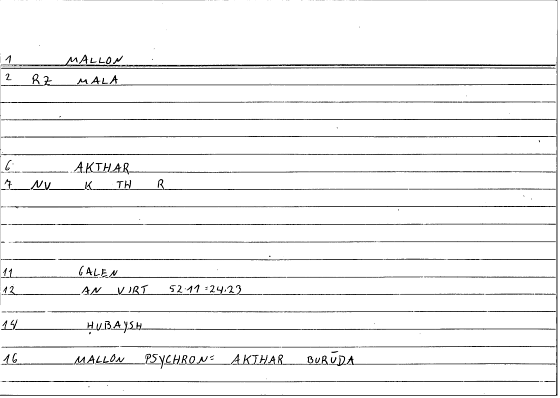 1 MALLON
2 RZ MALA
6 AKTHAR
7 NV K TH R
11 GALEN
12 AN VIRT 52.11=24.23
14 ḤUBAYSH
16 MALLON PSYCHRON= AKTHAR BURŪDA